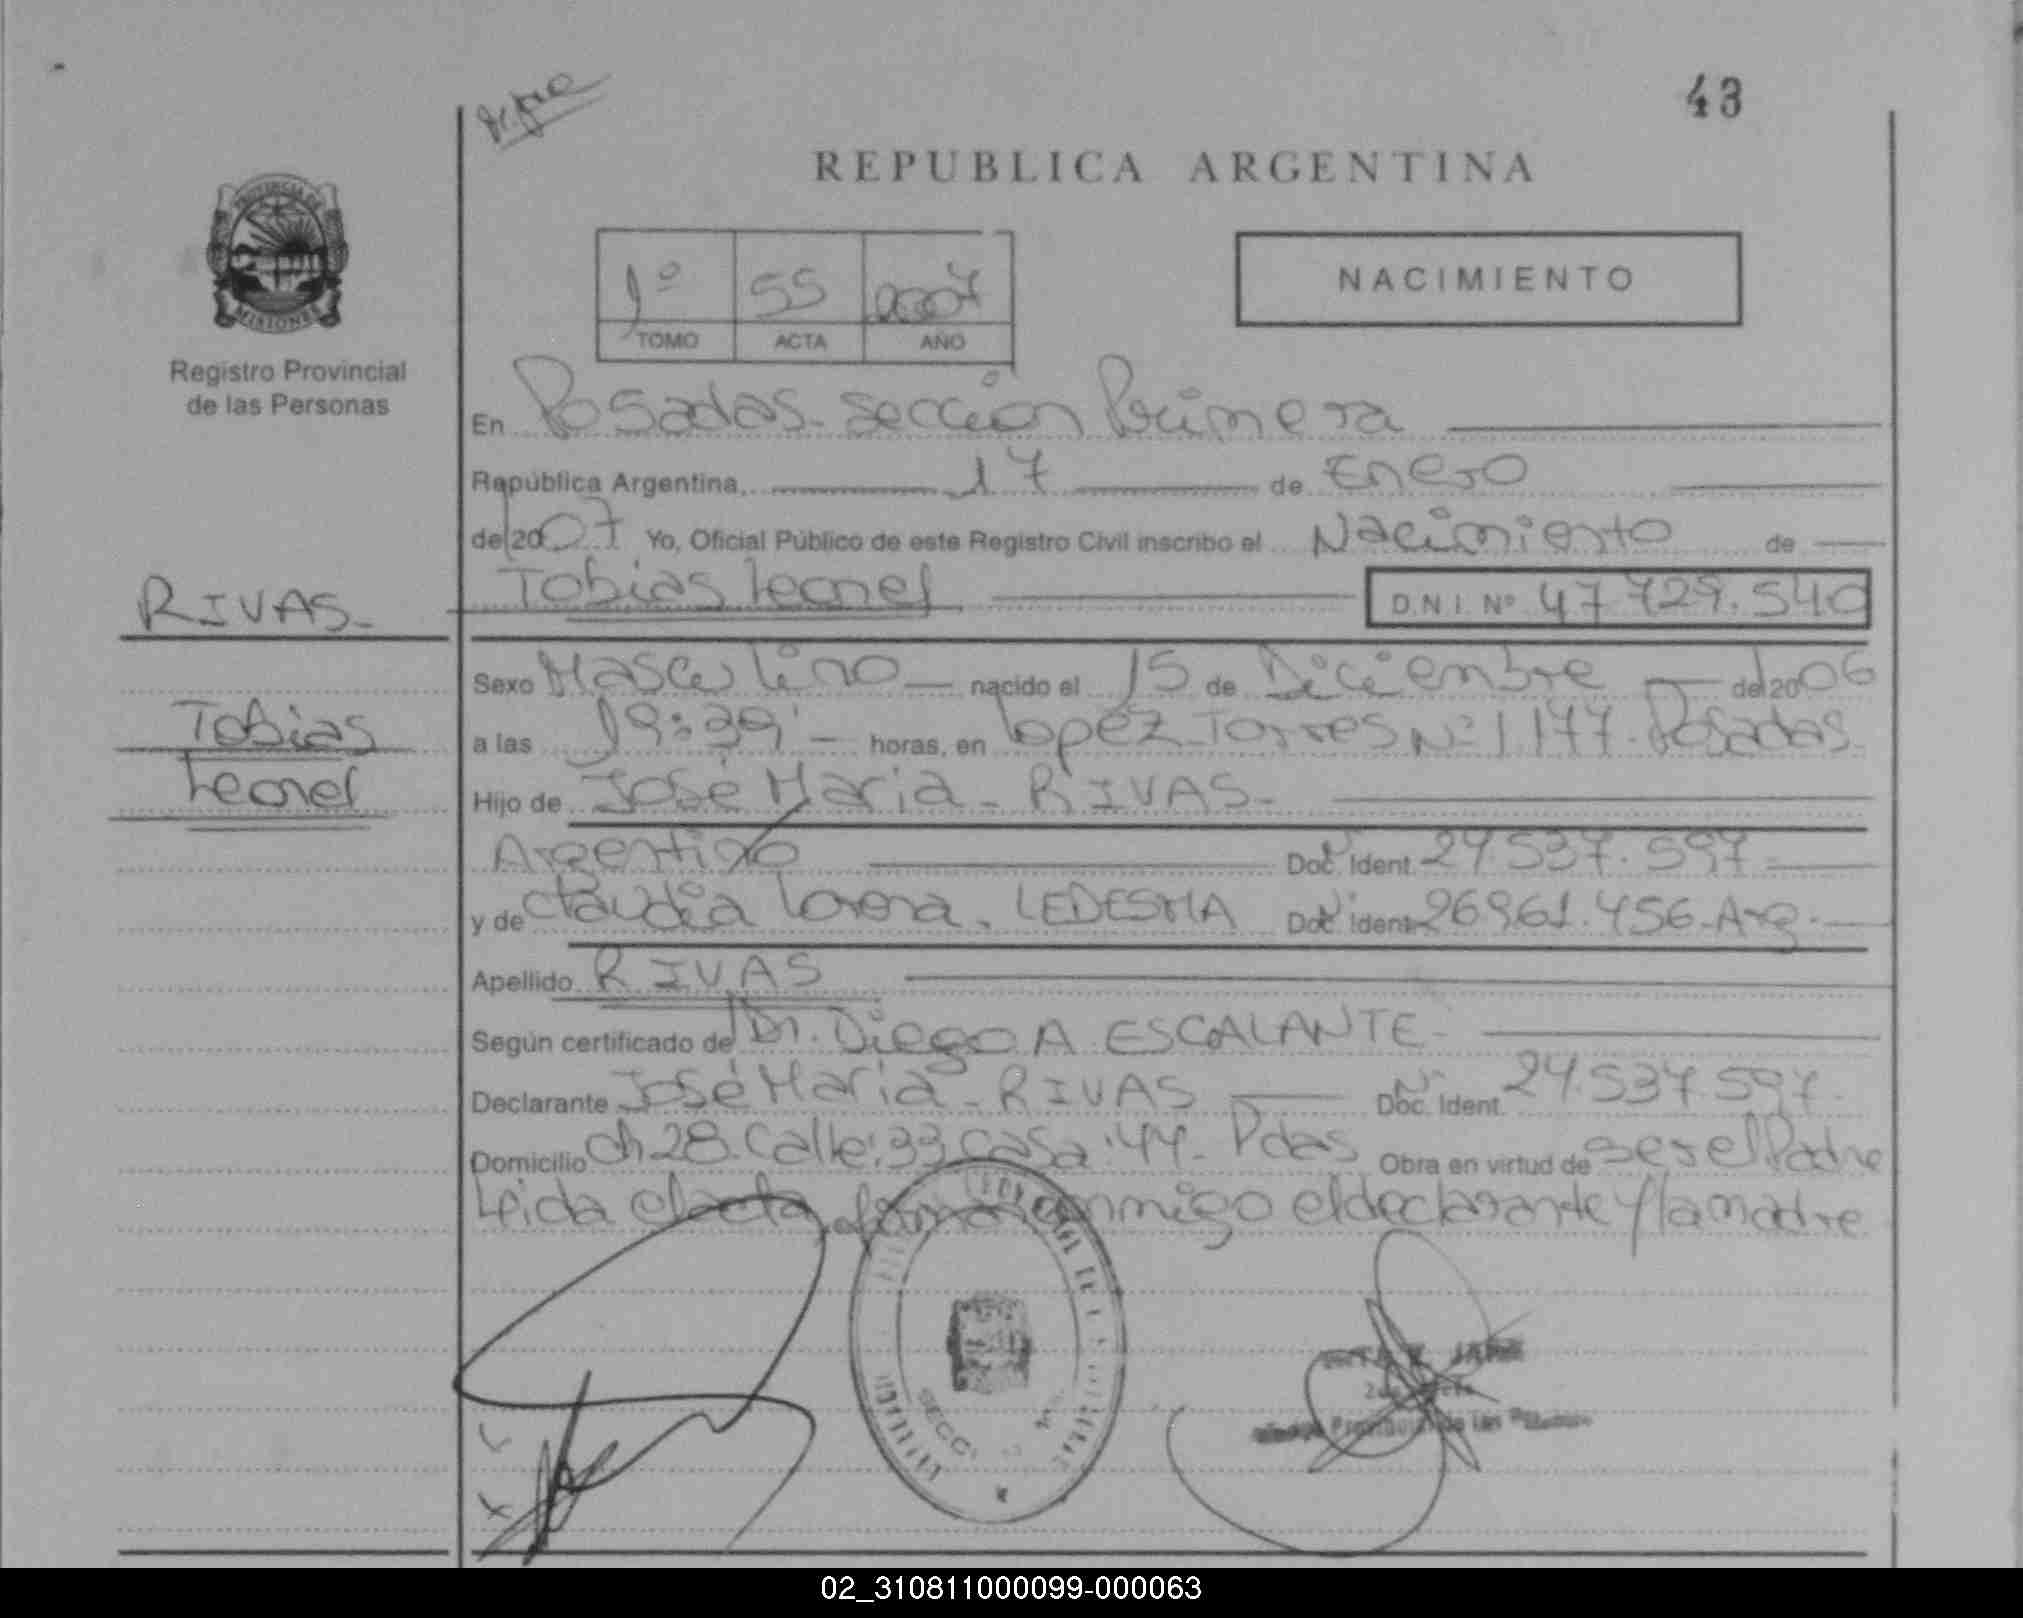 43
REPUBLICA ARGENTINA
PROVINCIA DE
MISIONES
Registro Provincial
de las Personas
1º 55 2007
TOMO ACTA AÑO
NACIMIENTO
En Posadas - Sección Primera
República Argentina, 17 de Enero
de 2007 Yo, Oficial Público de este Registro Civil inscribo el Nacimiento de
RIVAS - Tobias Leonel D.N.I. Nº 47 729.540
Sexo Masculino nacido el 15 de Diciembre de 2006
Tobias
a las 19:39' - horas, en Lopez Torres Nº 1.177 - Posadas
Leonel
Hijo de José Maria - RIVAS -
Argentino Doc. Ident. 24.537.597 -
y de Claudia Lorena - LEDESMA Doc. Ident. 26.961.456 - Arg. -
Apellido RIVAS
Según certificado de Dr. Diego A ESCALANTE -
Declarante José Maria - RIVAS Doc. Ident. 24.537.597 -
Domicilio ch 28. Calle: 33 casa: 44 - Pdas Obra en virtud de ser el Padre
Leida el acta, firman conmigo el declarante y la madre
02_310811000099-000063